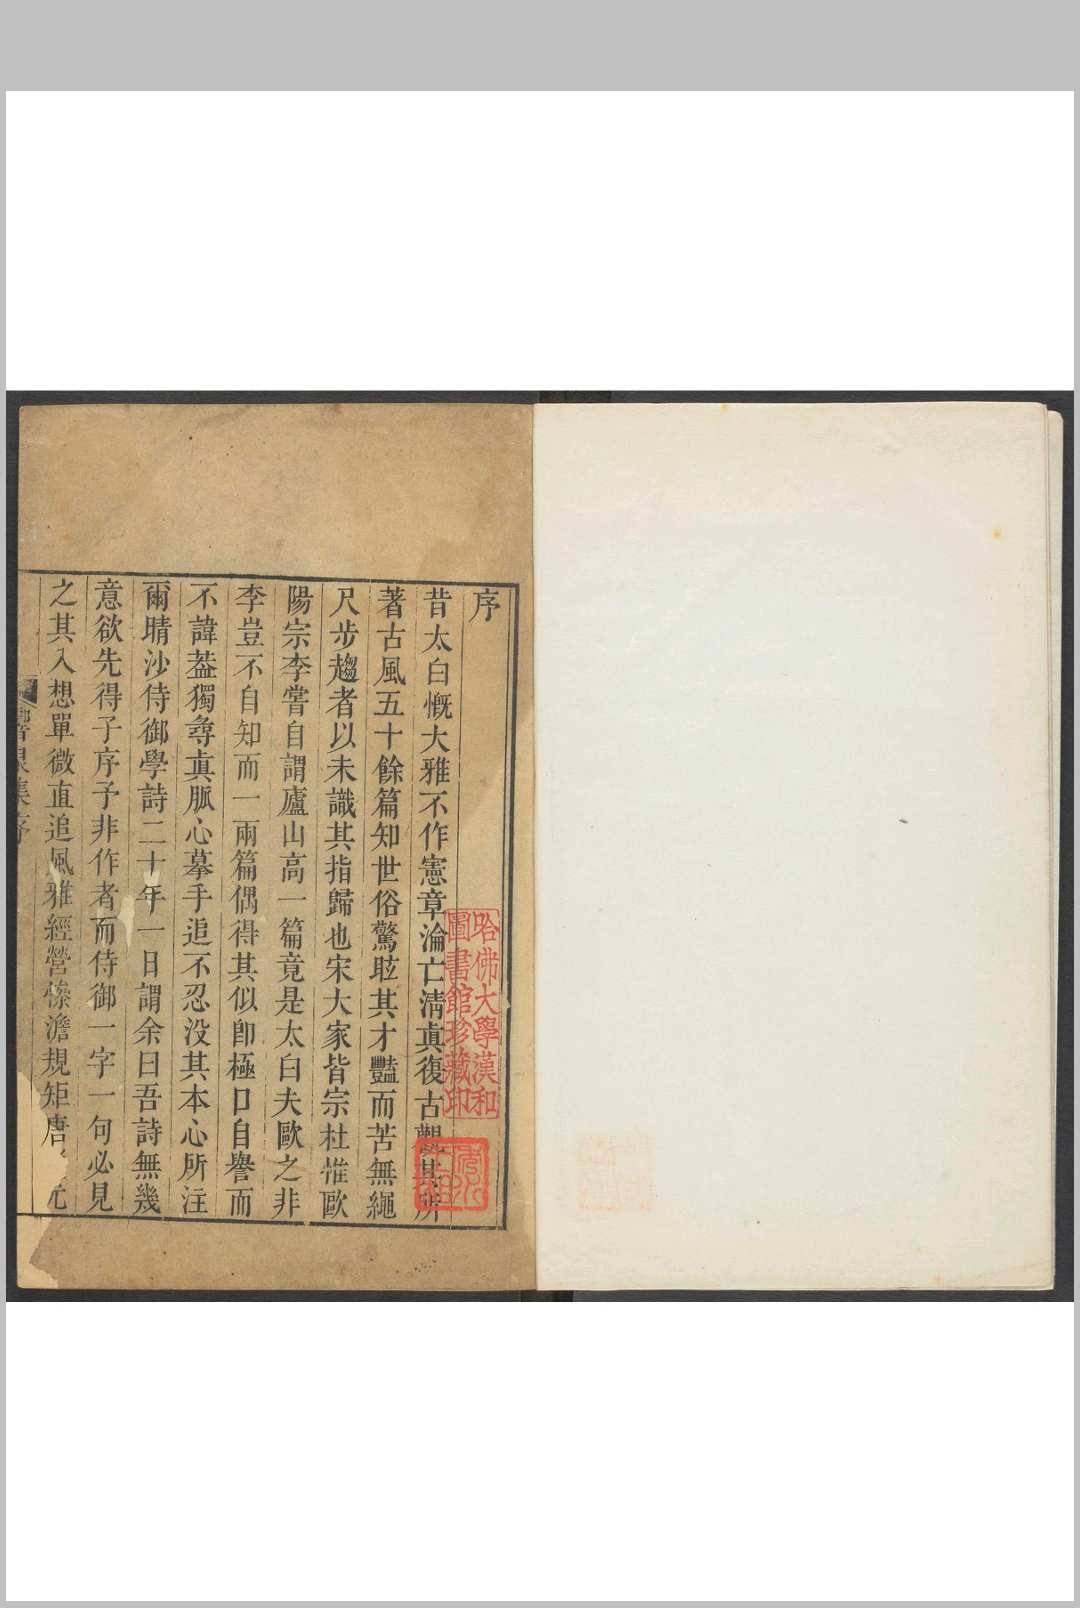 序
昔太白慨大雅不作憲章淪亡清真復古觀其所
著古風五十餘篇知世俗驚眩其才豔而苦無繩
尺步趨者以未識其指歸也宋大家皆宗杜惟歐
陽宗李嘗自謂廬山高一篇竟是太白夫歐之非
李豈不自知而一兩篇偶得其似卽極口自譽而
不諱葢獨尋眞脈心摹手追不忍没其本心所注
爾晴沙侍御學詩二十年一日謂余曰吾詩無幾
意欲先得子序予非作者而侍御一字一句必見
之其入想單微直追風雅經營慘澹規矩唐元
集序
哈佛大學漢和
圖書館珍藏印